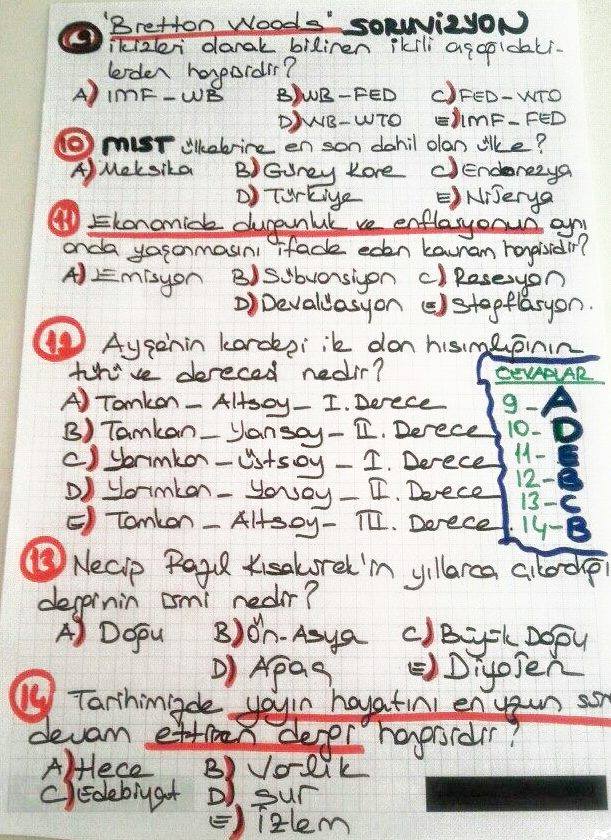 9 "Bretton Woods" SORUNİZYON
ikizleri olarak bilinen ikili aşağıdaki-
lerden hangisidir?
A) IMF - WB B) WB - FED C) FED - WTO
D) WB - WTO E) IMF - FED
10 MIST ülkelerine en son dahil olan ülke?
A) Meksika B) Güney Kore C) Endonezya
D) Türkiye E) Nijerya
11 Ekonomide durgunluk ve enflasyonun aynı
anda yaşanmasını ifade eden kavram hangisidir?
A) Emisyon B) Sübvansiyon C) Resesyon
D) Devalüasyon E) Stagflasyon.
12 Ayşe'nin kardeşi ile olan hısımlığının
türü ve derecesi nedir?
A) Tamkan - Altsoy - I. Derece
B) Tamkan - Yansoy - II. Derece
C) Yarımkan - Üstsoy - I. Derece
D) Yarımkan - Yansoy - II. Derece
E) Tamkan - Altsoy - III. Derece
CEVAPLAR
9 - A
10 - D
11 - E
12 - B
13 - C
14 - B
13 Necip Fazıl Kısakürek'in yıllarca çıkardığı
derginin ismi nedir?
A) Doğu B) Ön-Asya C) Büyük Doğu
D) Ağaç E) Diyojen
14 Tarihimizde yayın hayatını en uzun sür
devam ettiren dergi hangisidir?
A) Hece B) Varlık
C) Edebiyat D) Sur
E) İzlem